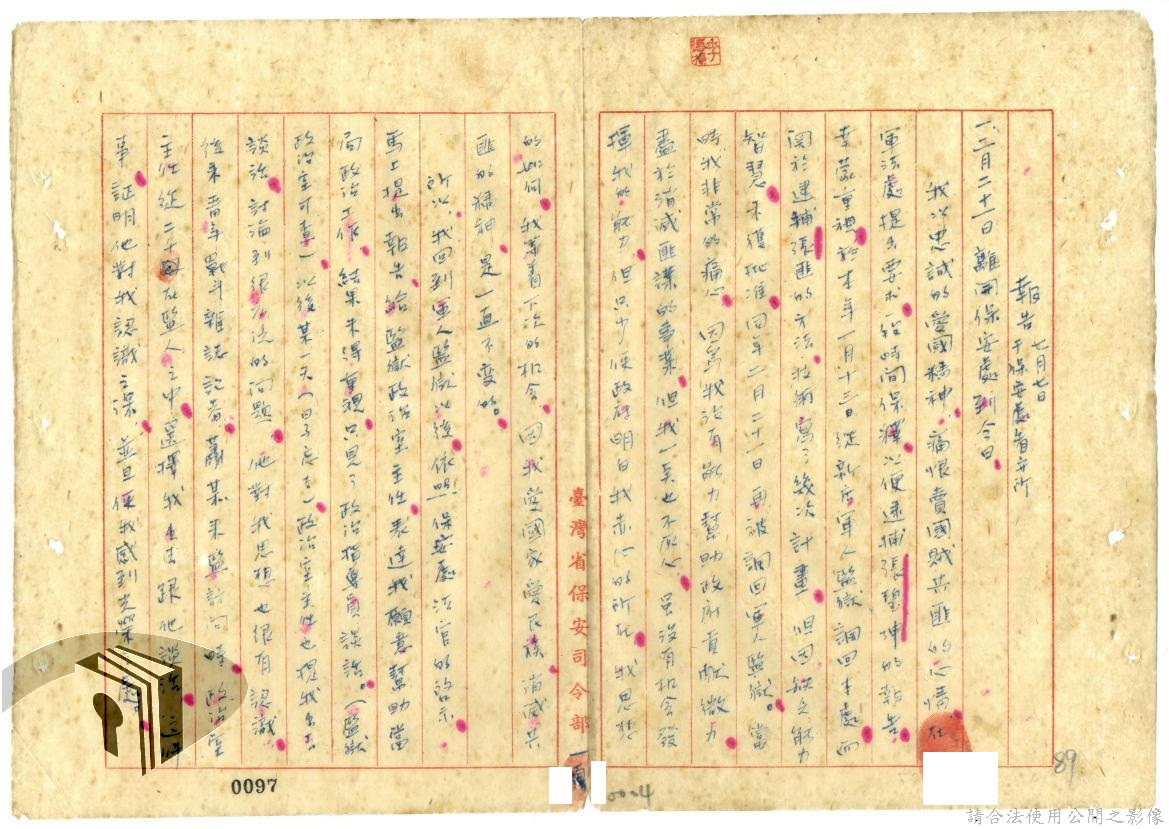 報告 七月七日
于保安處看守所
一、二月二十一日離開保安處到今日
我以忠誠的愛國精神、痛恨賣國賊共匪的心情、在
軍法處提出要求一短時間保釋以便逮捕張碧坤的報告
幸蒙重視於本年一月十三日從新店軍人監獄調回本處而
関於逮捕張匪的方法技術寫了幾次計畫但因缺乏能力
智慧未獲批准同年二月二十一日再被調回軍人監獄。當
時我非常的痛心、因為我沒有能力幫助政府貢献微力
盡於消滅匪諜的事業但我一點也不灰心、虽沒有机会發
揮我的能力、但只少使政府明白我赤心的所在、我思想
的如何、我等着下次的机会、因我愛國家愛民族、消滅共
匪的精神、是一直不变的。
所以、我回到軍人監獄以後依照保安處法官的啓示、
馬上提出報告給監獄政治室主任表達我願意幫助當
局政治工作、結果未得重視只見了政治指導員談話。（監獄
政治室可查）以後某一天（日子忘去）政治室主任也提我出去、
談話、討論到很多的問題、他對我思想也很有認識
後來青年戰斗雜誌記者、蕭某来監訪問時、政治室
主任從二千囚在監人之中、選擇我出去跟他談話、這件
事証明他對我認識之深、並且使我感到光榮之處
臺灣省保安司令部
頁
0097
0004
89
請合法使用公開之影像